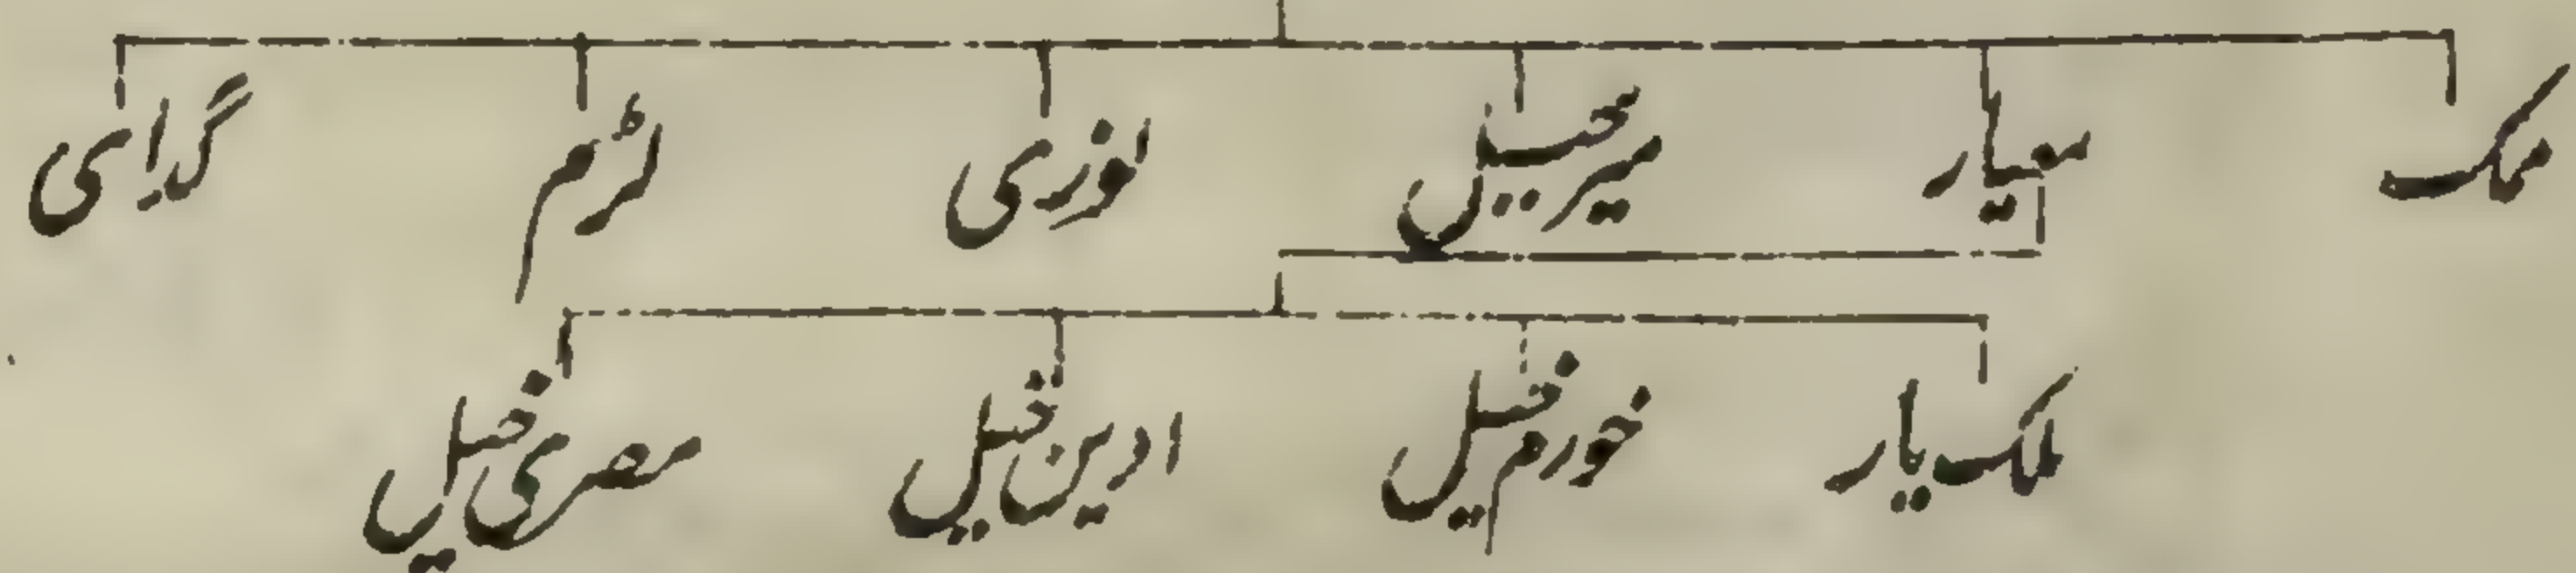 ممک معیار میر حبیل نوزی لڑم گدای
ملک یار خورم خیل ادین خیل مصری خیل